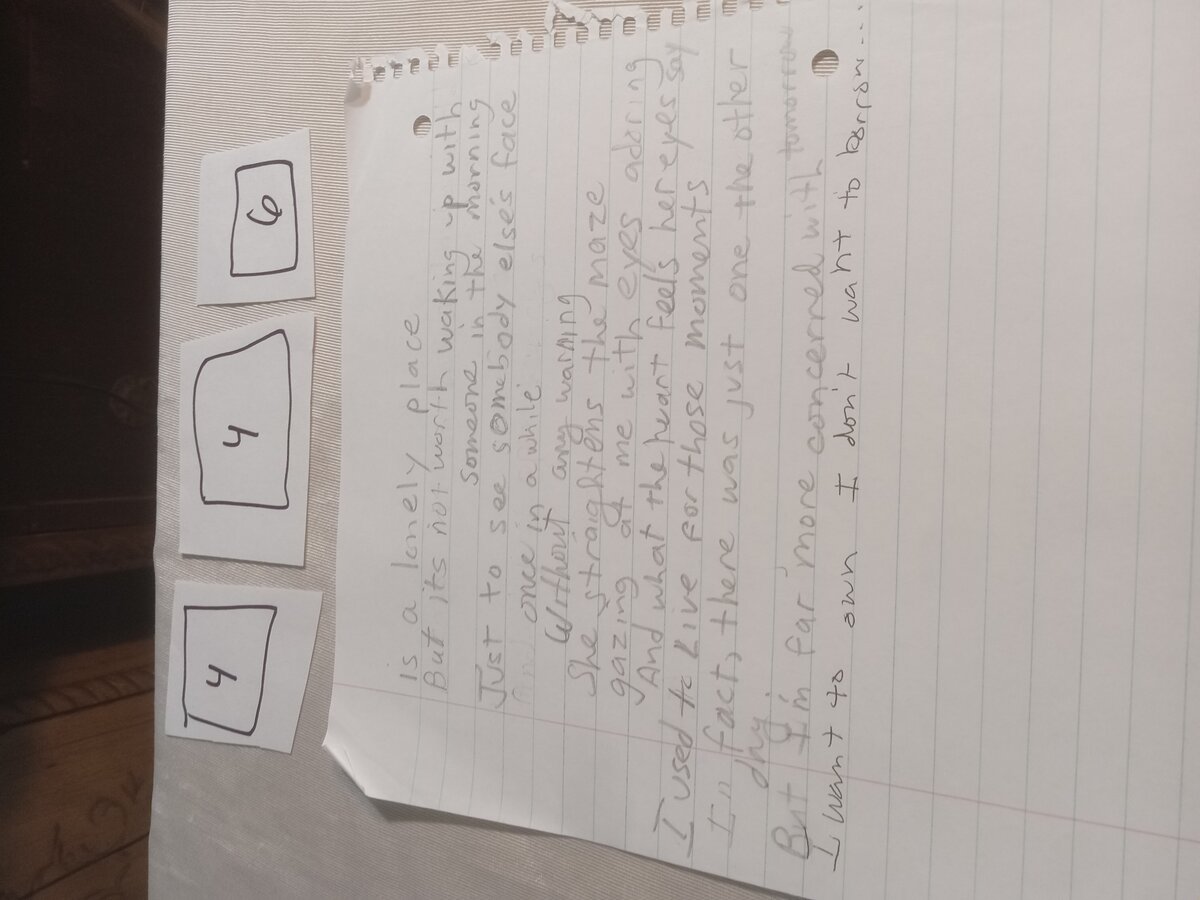 4 4 6
is a lonely place
But its not worth waking up with
someone in the morning
Just to see somebody else's face
once in a while
Without any warning
She straightens the maze
gazing at me with eyes adoring
And what the heart feels her eyes say
I used to Live for those moments
In fact, there was just one the other
day
But I'm far more concerned with tomorrow
I want to own I don't want to borrow...